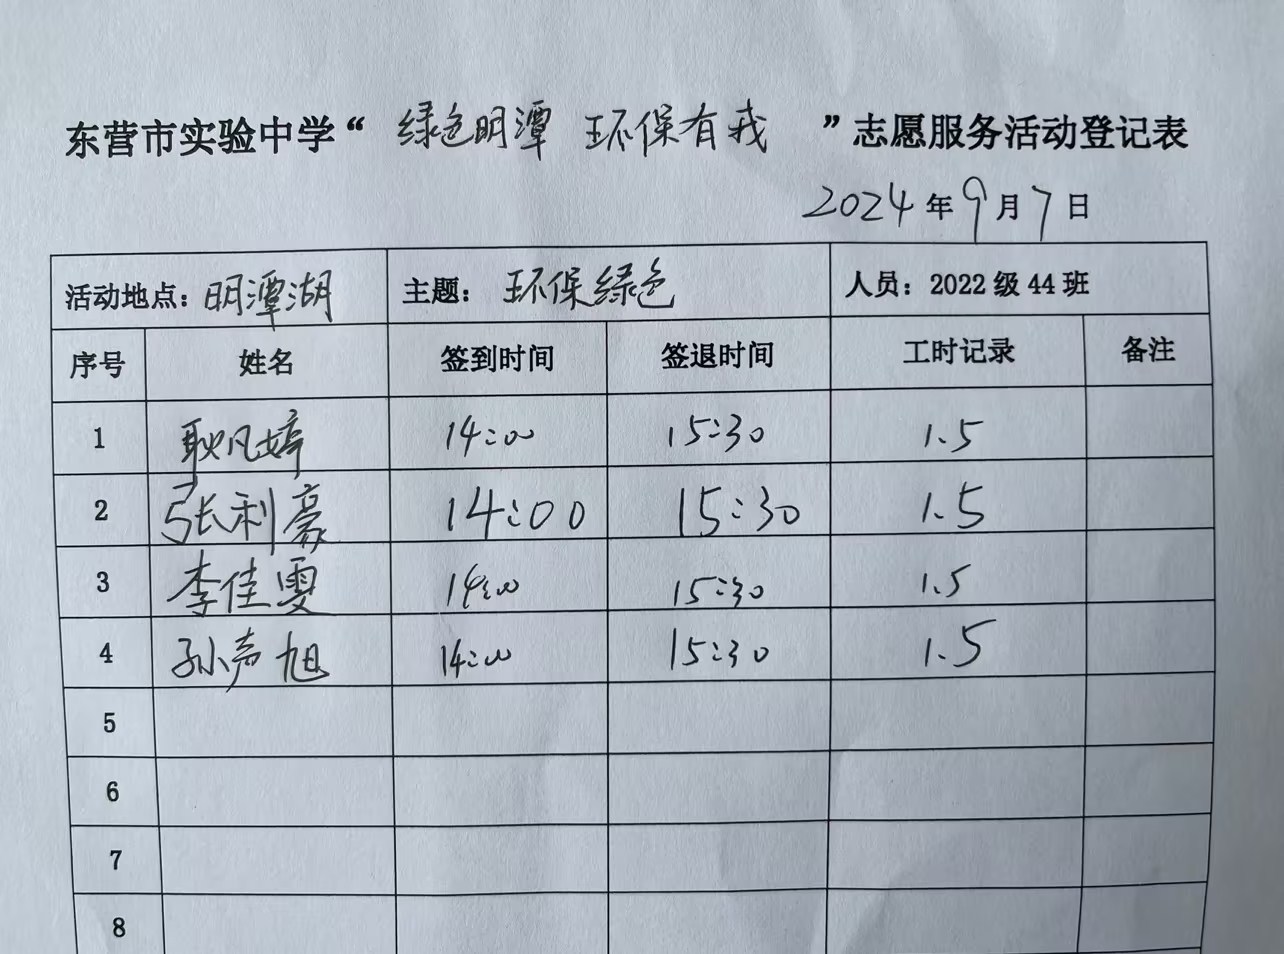 东营市实验中学“ 绿色明潭 环保有我 ”志愿服务活动登记表
2024年9月7日
活动地点：明潭湖 主题：环保绿色 人员：2022级44班
序号 姓名 签到时间 签退时间 工时记录 备注
1 耿凡婷 14:00 15:30 1.5
2 张利豪 14:00 15:30 1.5
3 李佳雯 14:00 15:30 1.5
4 孙声旭 14:00 15:30 1.5
5
6
7
8